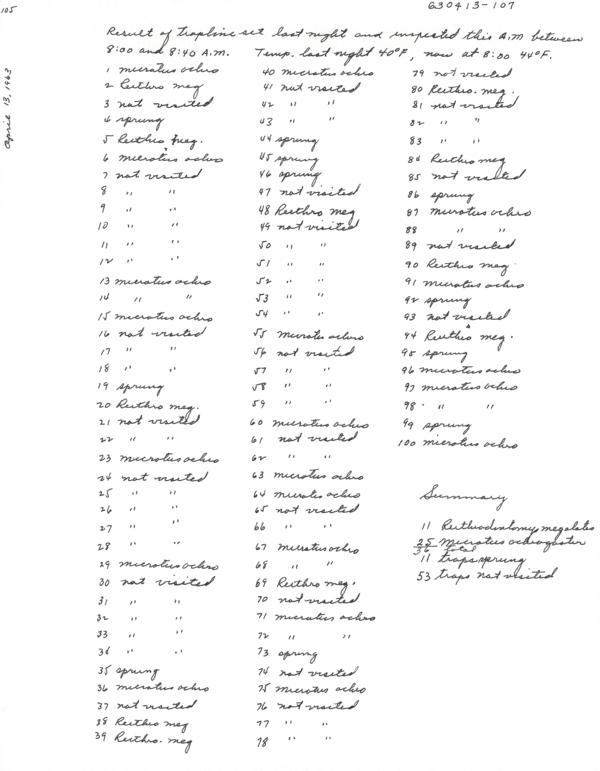 105
630413-107
April 13, 1963
Result of trapline set last night and inspected this A.M between
8:00 and 8:40 A.M. Temp. last night 40°F, now at 8:00 44°F.
1 microtus ochro
2 Reithro meg
3 not visited
4 sprung
5 Reithro meg.
6 microtus ochro
7 not visited
8 " "
9 " "
10 " "
11 " "
12 " "
13 microtus ochro
14 " "
15 microtus ochro
16 not visited
17 " "
18 " "
19 sprung
20 Reithro meg.
21 not visited
22 " "
23 microtus ochro
24 not visited
25 " "
26 " "
27 " "
28 " "
29 microtus ochro
30 not visited
31 " "
32 " "
33 " "
34 " "
35 sprung
36 microtus ochro
37 not visited
38 Reithro meg
39 Reithro. meg
40 microtus ochro
41 not visited
42 " "
43 " "
44 sprung
45 sprung
46 sprung
47 not visited
48 Reithro meg
49 not visited
50 " "
51 " "
52 " "
53 " "
54 " "
55 microtus ochro
56 not visited
57 " "
58 " "
59 " "
60 microtus ochro
61 not visited
62 " "
63 microtus ochro
64 microtus ochro
65 not visited
66 " "
67 microtus ochro
68 " "
69 Reithro meg.
70 not visited
71 microtus ochro
72 " "
73 sprung
74 not visited
75 microtus ochro
76 not visited
77 " "
78 " "
79 not visited
80 Reithro. meg.
81 not visited
82 " "
83 " "
84 Reithro meg
85 not visited
86 sprung
87 microtus ochro
88 " "
89 not visited
90 Reithro meg.
91 microtus ochro
92 sprung
93 not visited
94 Reithro meg.
95 sprung
96 microtus ochro
97 microtus ochro
98 " "
99 sprung
100 microtus ochro
Summary
11 Reithrodontomys megalotis
25 microtus ochrogaster
36 total
11 traps sprung
53 traps not visited